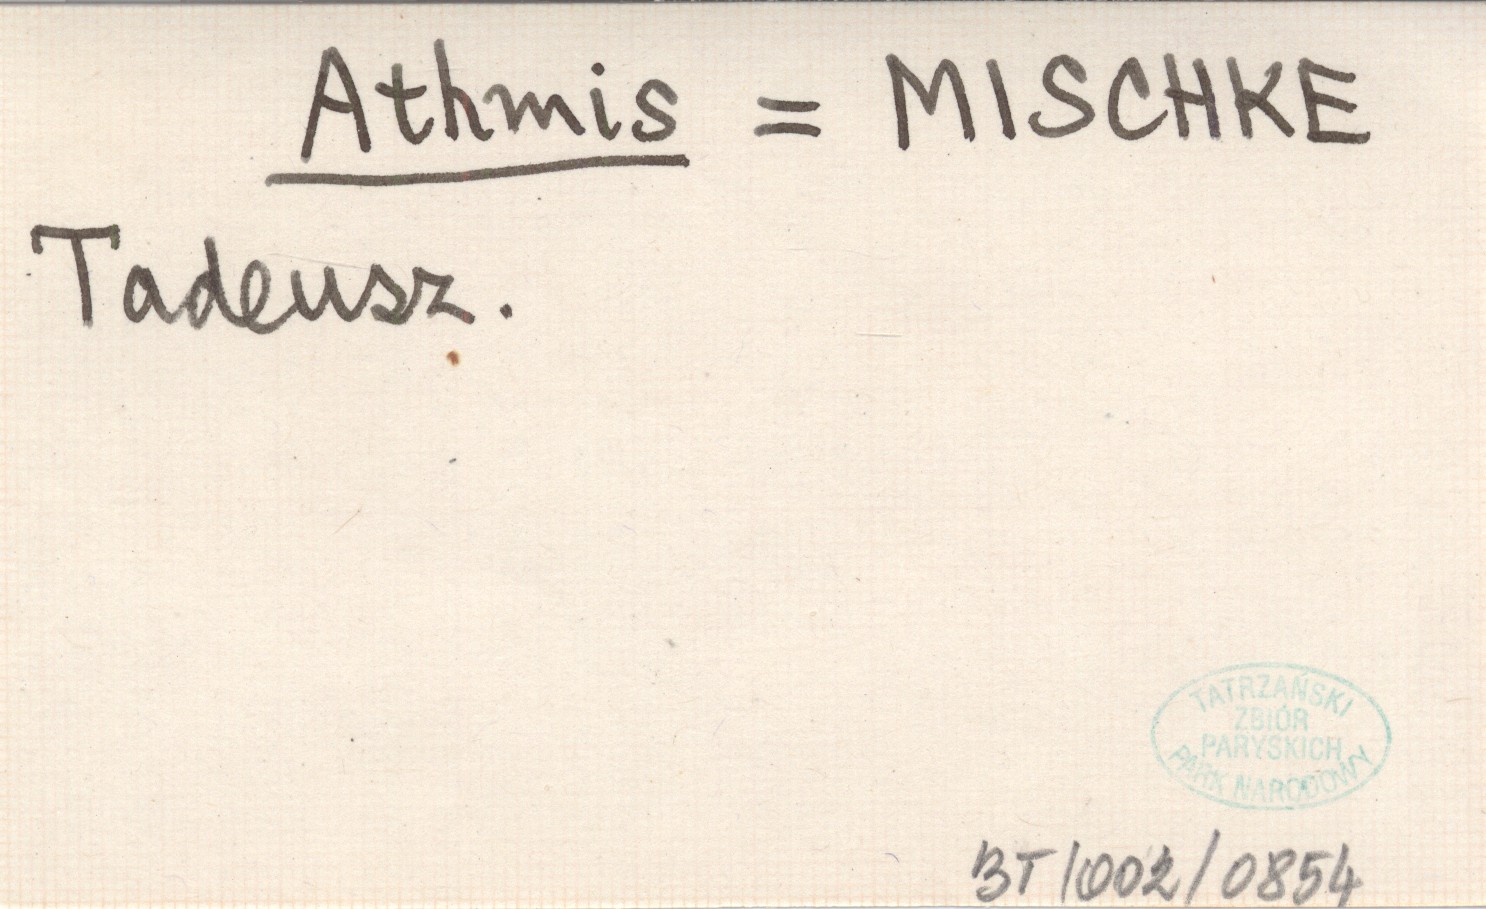 Athmis = MISCHKE
Tadeusz.
TATRZAŃSKI
ZBIÓR
PARYSKICH
PARK NARODOWY
BT/002/0854